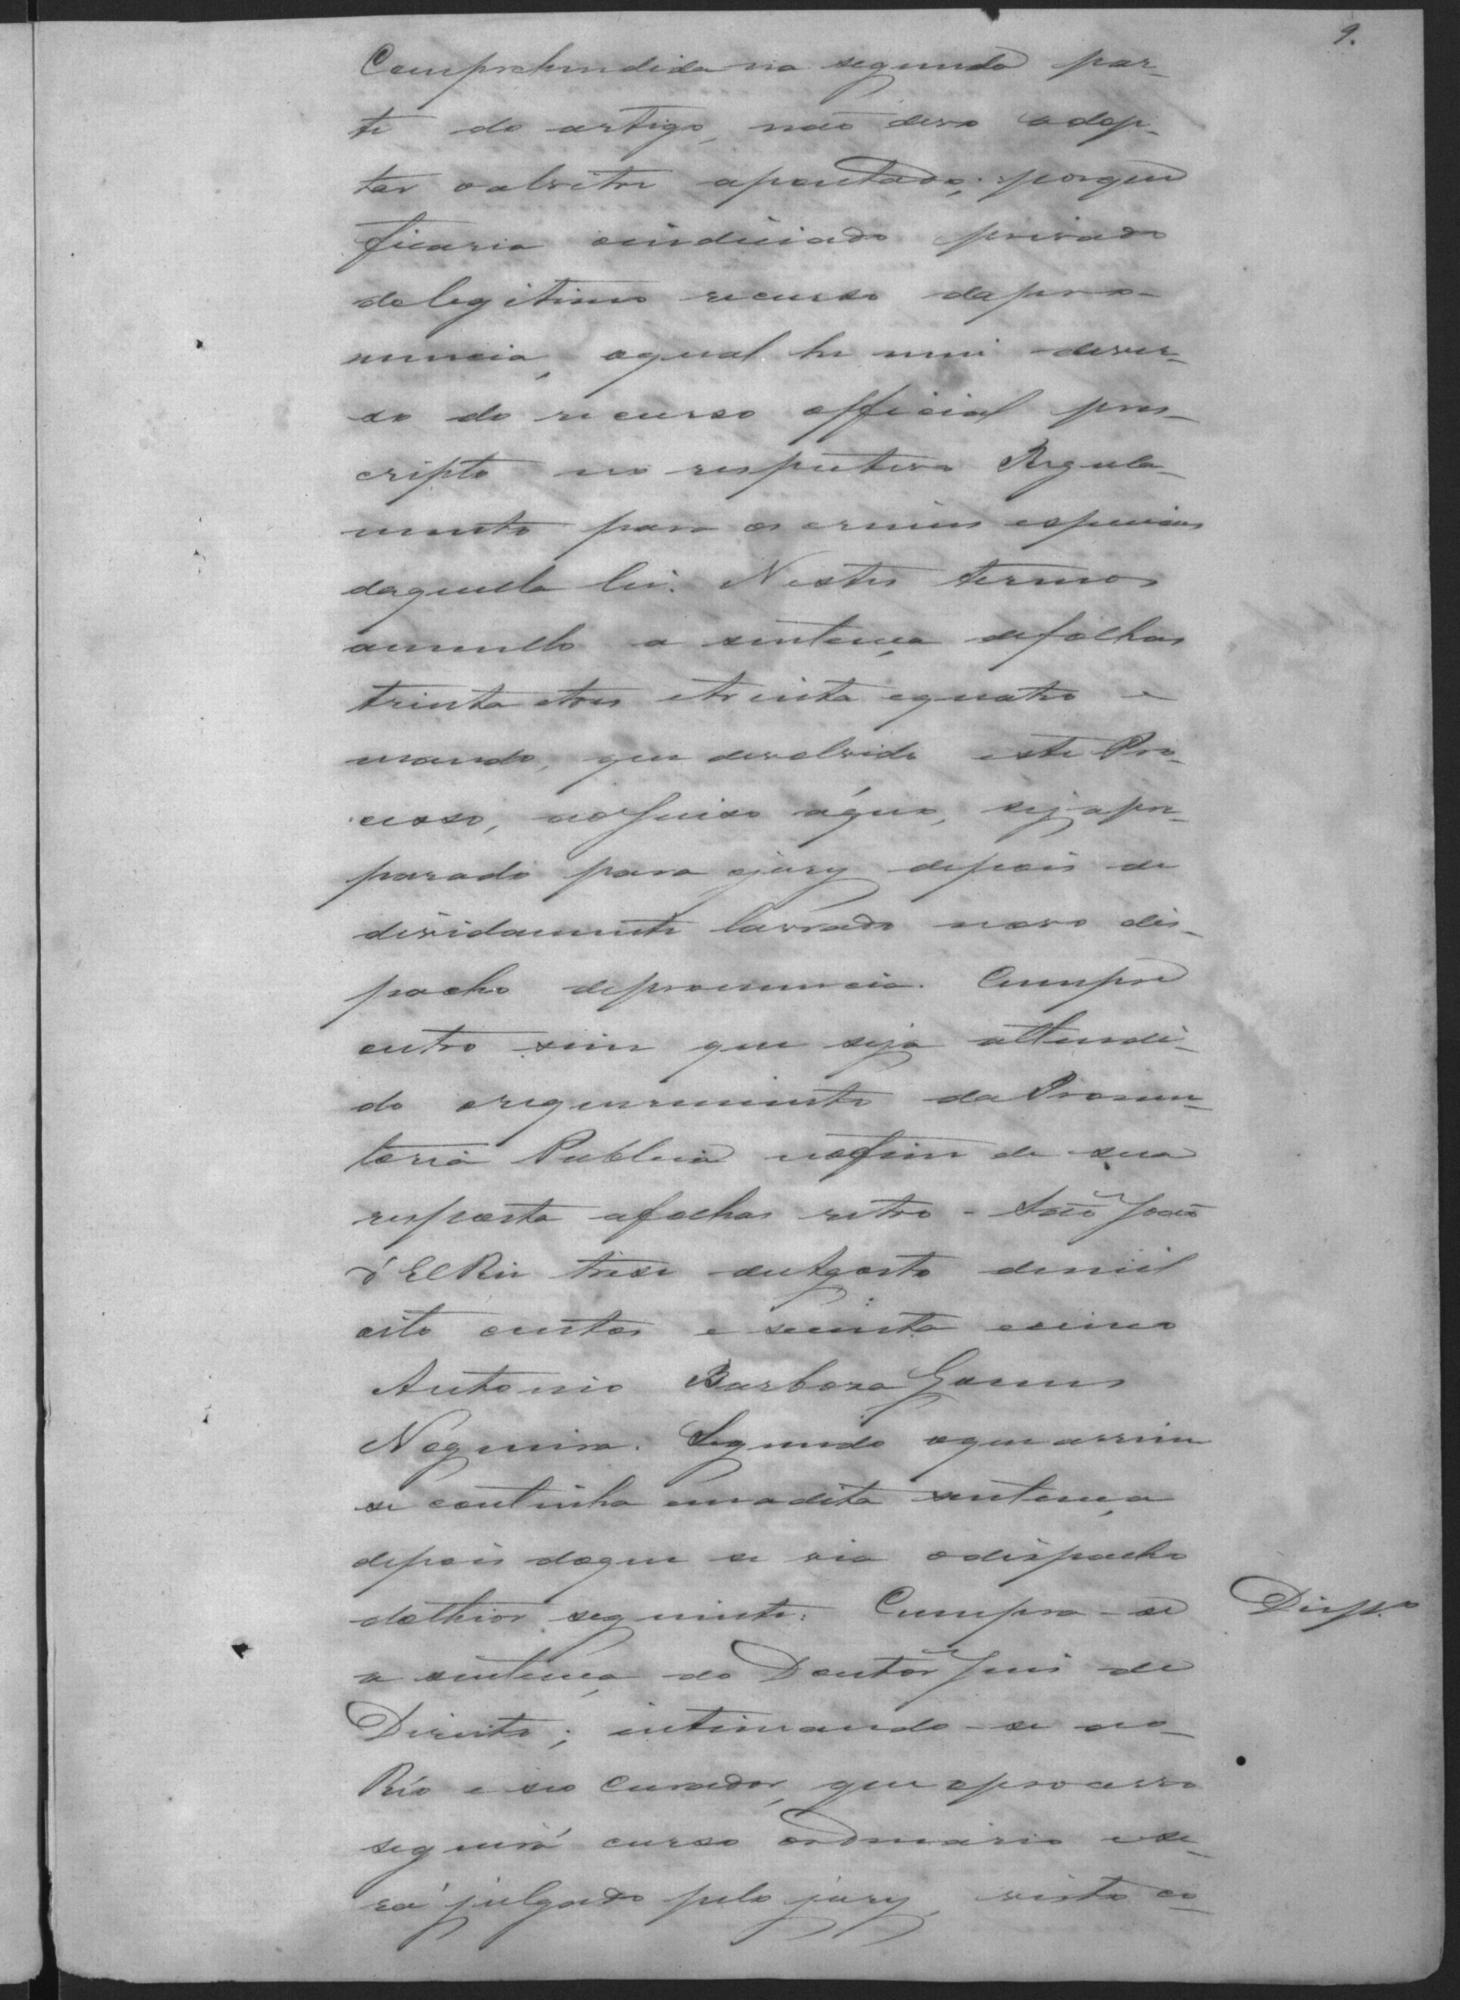 9.
Comprehendida na segunda par-
te do artigo, não devo adop-
tar o alvitre apontado; porque
ficaria o indiciado privado
do legitimo recurso da pro-
nuncia, o qual he mui diver-
so do recurso official pres-
cripto no respectivo Regula-
mento para os crimes especiaes
daquella lei. Nestes termos
annullo a sentença de folhas
trinta e tres e trinta e quatro e
mando, que devolvido este Pro-
cesso, ao Juiso a quo, seja pre-
parado para o jury depois de
devidamente lavrado novo des-
pacho de pronuncia. Cumpre
outro sim que seja attendi-
do o requerimento da Promo-
toria Publica no fim de sua
resposta a folhas retro - São João
d'El Rei trese de Agosto de mil
oito centos e secenta e cinco
Antonio Barboza Gomes
Nogueira. Segundo o que assim
se continha em a dita sentença
depois do que se via o despacho
do theor seguinte: Cumpra-se
Desp.o
a sentença do Doutor Juis de
Direito; intimando-se ao
Réo e seo Curador, que o processo
seguirá curso ordinario e se-
rá julgado pelo jury, visto co-